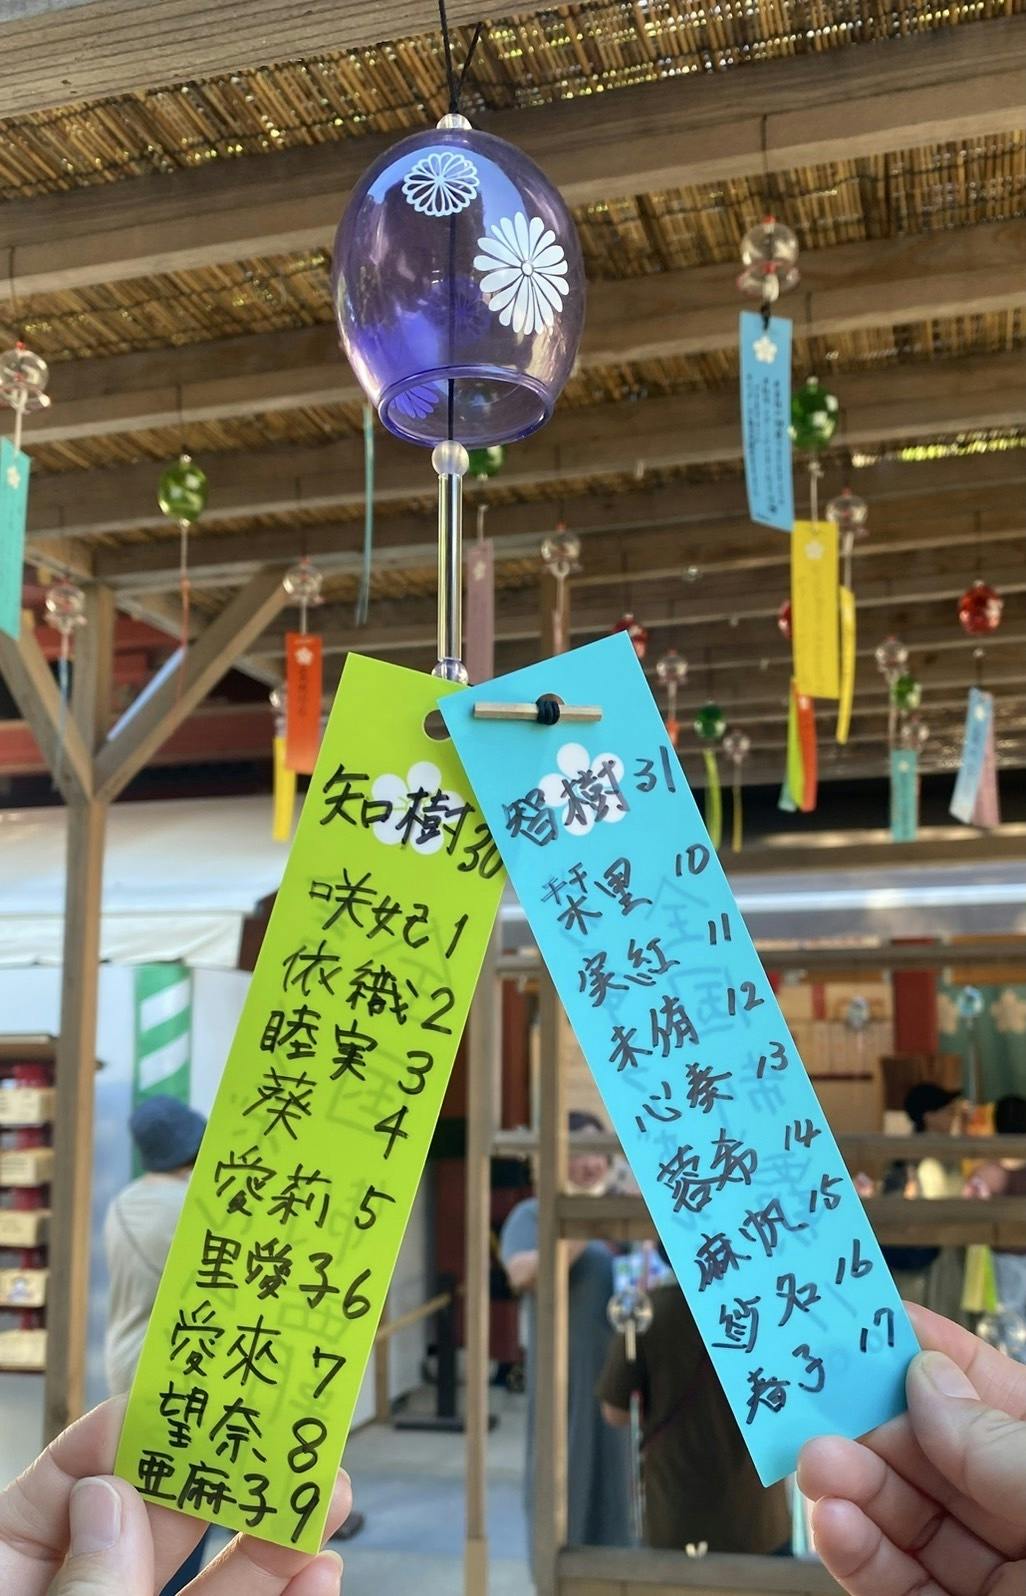 知樹30
咲妃1
依織2
睦実3
葵4
愛莉5
里愛子6
愛來7
望奈8
亜麻子9
智樹31
栞里10
実紅11
未侑12
心奏13
蓉希14
麻帆15
紗名16
春子17